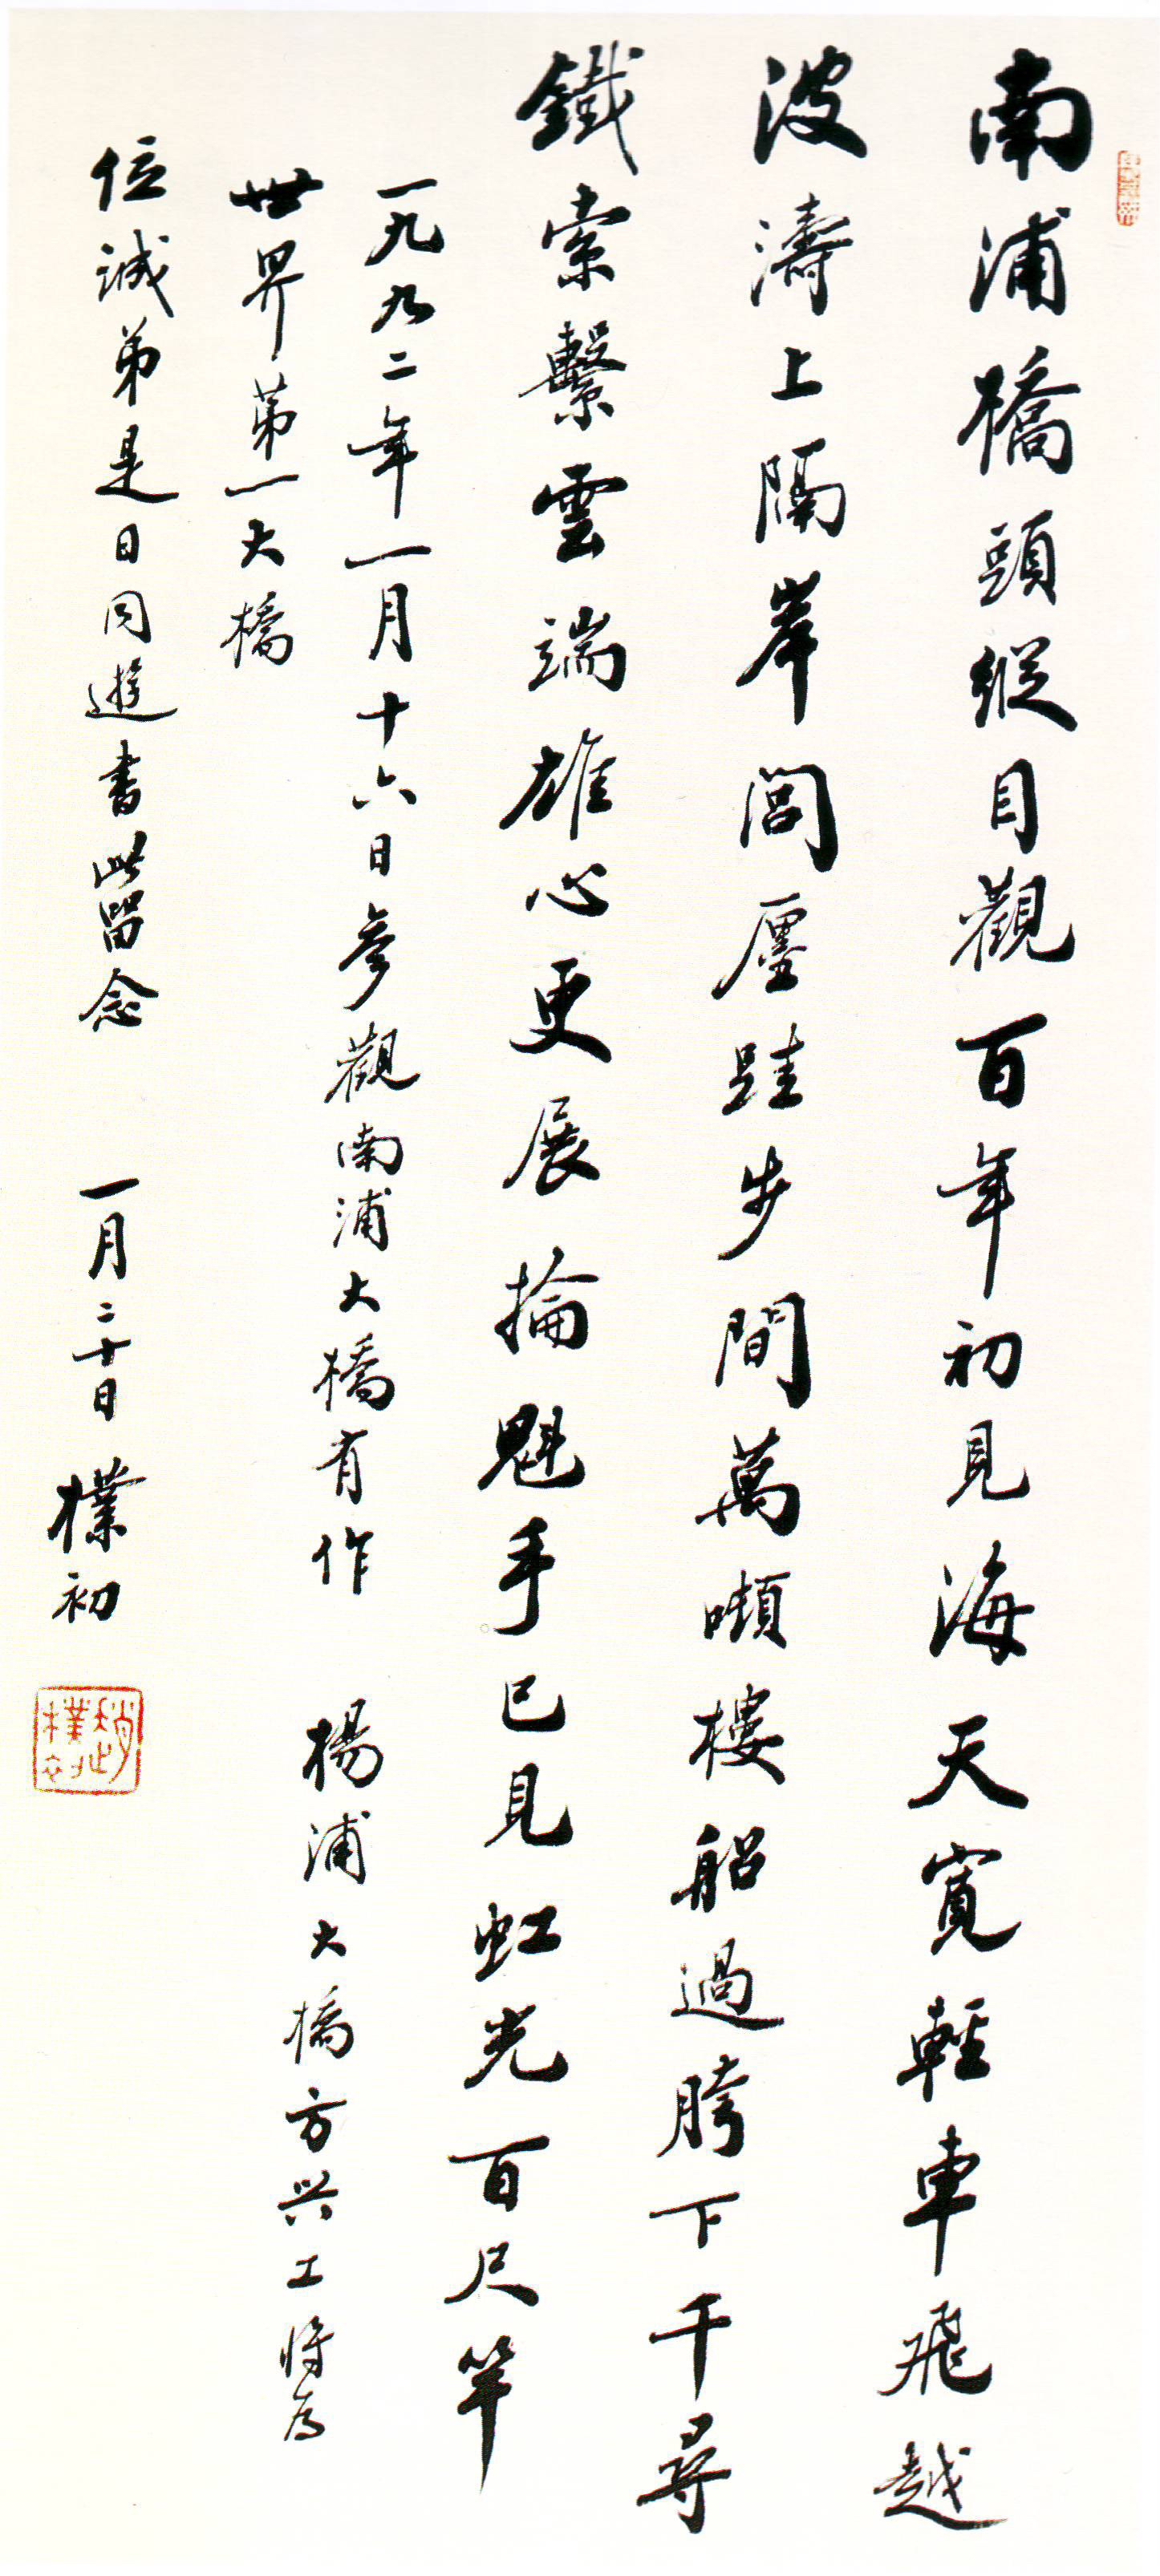 南浦橋頭縱目觀百年初見海天寬輕車飛越
波濤上隔岸閭廛跬步間萬噸樓船過胯下千尋
鐵索繫雲端雄心更展掄魁手已見虹光百尺竿
一九九二年一月十六日參觀南浦大橋有作 楊浦大橋方兴工將为
世界第一大橋
位誠弟是日同遊書此留念 一月二十日 樸初
趙樸初